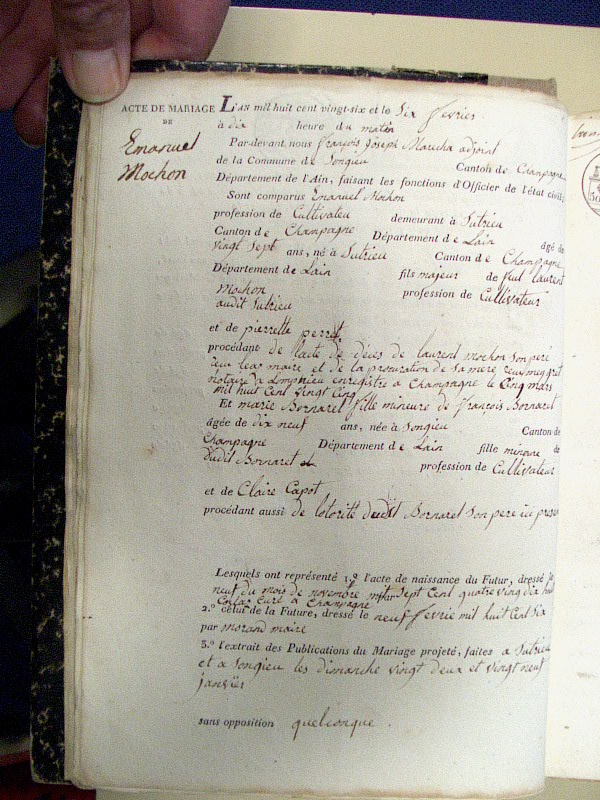 ACTE DE MARIAGE
DE
Emanuel
Mochon
L'AN mil huit cent vingt-six et le six fevrier
à dix heure du matin
Par-devant nous françois Joseph Marecha adjoint
de la Commune de Songieu Canton de Champagne
Département de l'Ain, faisant les fonctions d'Officier de l'état civil;
Sont comparus Emanuel Mochon
profession de Cultivateu demeurant à Sutrieu
Canton de Champagne Département de Lain âgé de
vingt Sept ans, né à Sutrieu Canton de Champagne
Département de Lain fils majeur de feu laurent
Mochon profession de Cultivateur
audit Sutrieu
et de pierrette perret
procédant de lacte de déces de laurent mochon Son peré
maire et de la procuration de Sa mere
notaire a Lompnieu enregistré a Champagne le Cinq mars
mil huit Cent vingt Cinq
Et marie Bornaret fille mineure de françois Bornaret
âgée de dix neuf ans, née à Songieu Canton de
Champagne Département de Lain fille mineure de
dudit Bornaret profession de Cultivateur
et de Claire Capot
procédant aussi de lotorité dudit Bornaret Son pere ici presen
Lesquels ont représenté 1.º l'acte de naissance du Futur, dressé le
neuf du mois de novembre mil Sept Cent quatre vingt dix huit
par Curé a Champagne
2.º celui de la Future, dressé le neuf fevrie mil huit Cent Six
par morand maire
3.º l'extrait des Publications du Mariage projeté, faites a Sutrieu
et a Songieu les dimanche vingt deux et vingt neuf
janvier
sans opposition quelconque